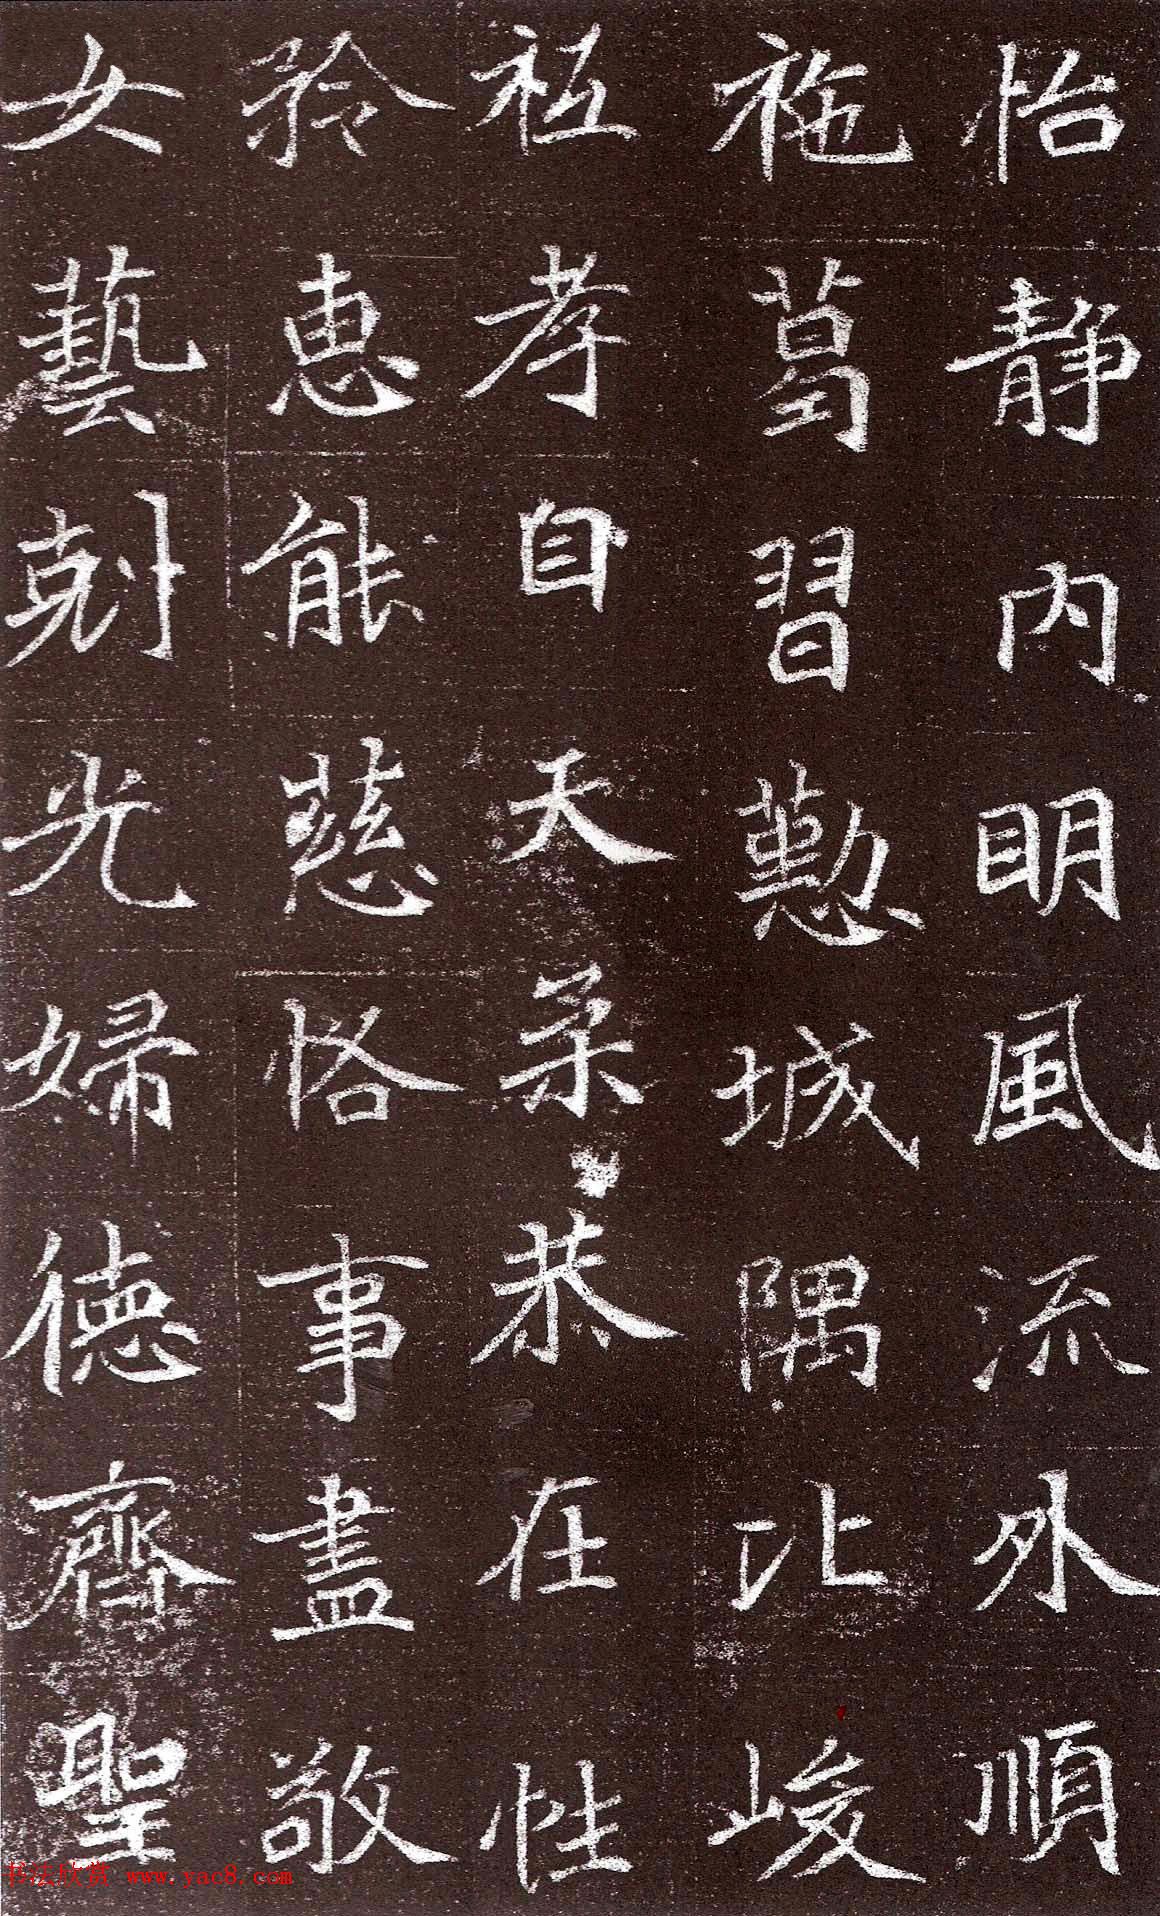 怡静内明風流外順
袘葛習懃城隅比峻
祗孝自天柔恭在性
矜惠能慈恪事盡敬
女藝剋光婦德齊聖
书法欣赏 www.yac8.com